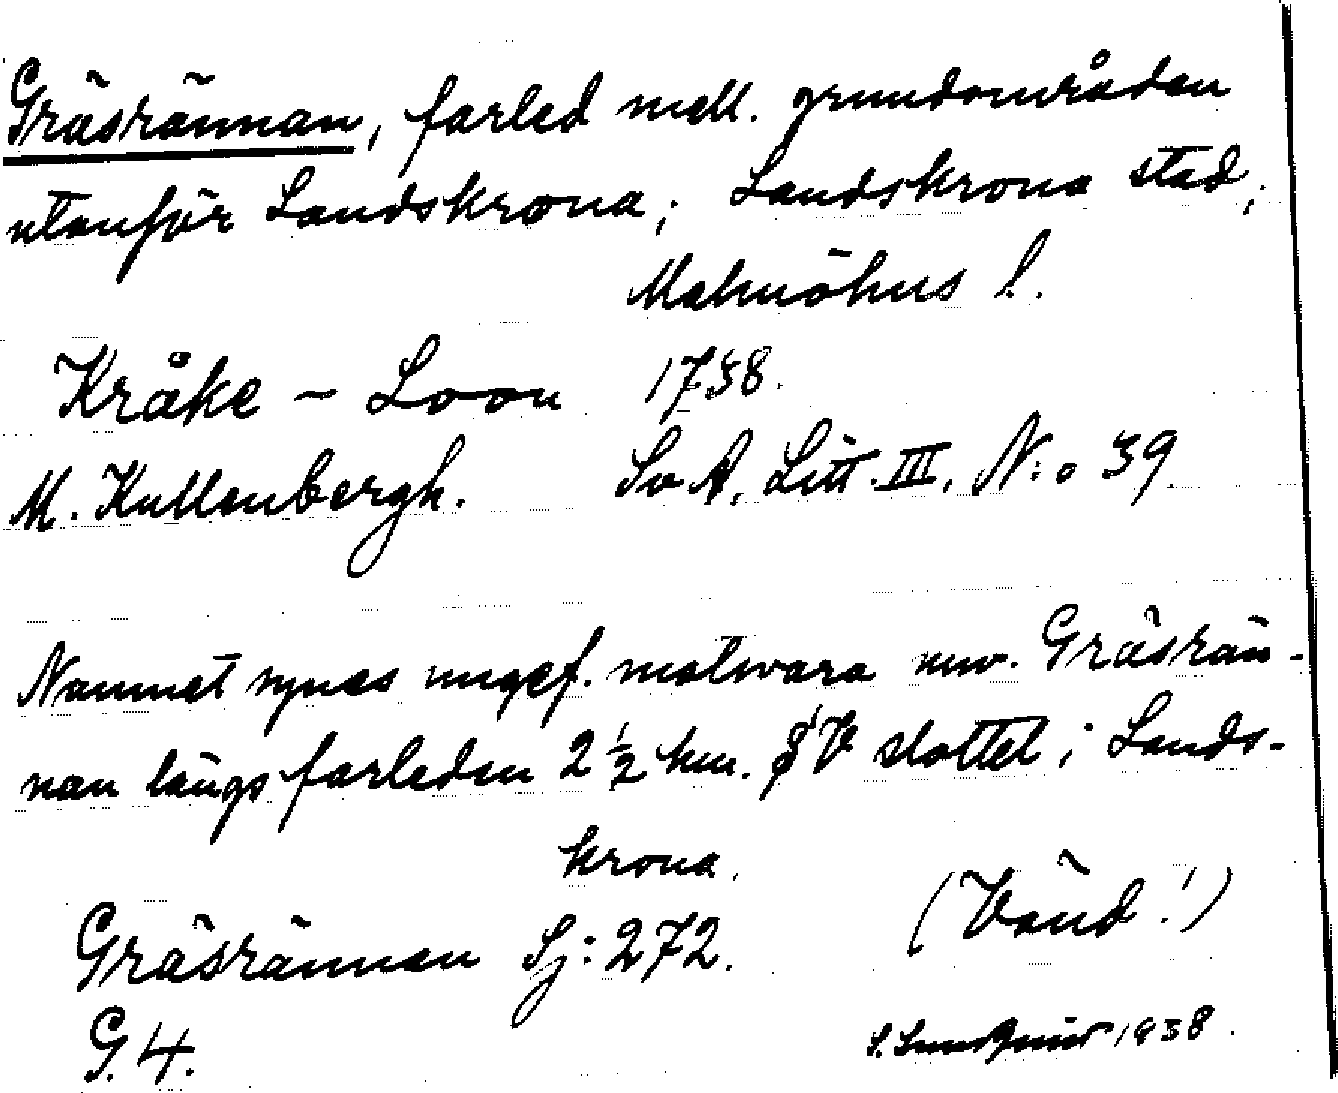 Gräsrännan, farled mell. grundområden
utanför Landskrona; Landskrona stad,
Malmöhus l.
Kråke - Loou 1738.
M. Kullenbergh. Sv A, Litt. III, N:o 39
Namnet synes ungef. motsvara nuv. Gräsrän-
nan längs farleden 2 1/2 km. V slottet i Lands-
krona.
Gräsrännan Sj: 272. (Vänd!)
G. 4. 1938.